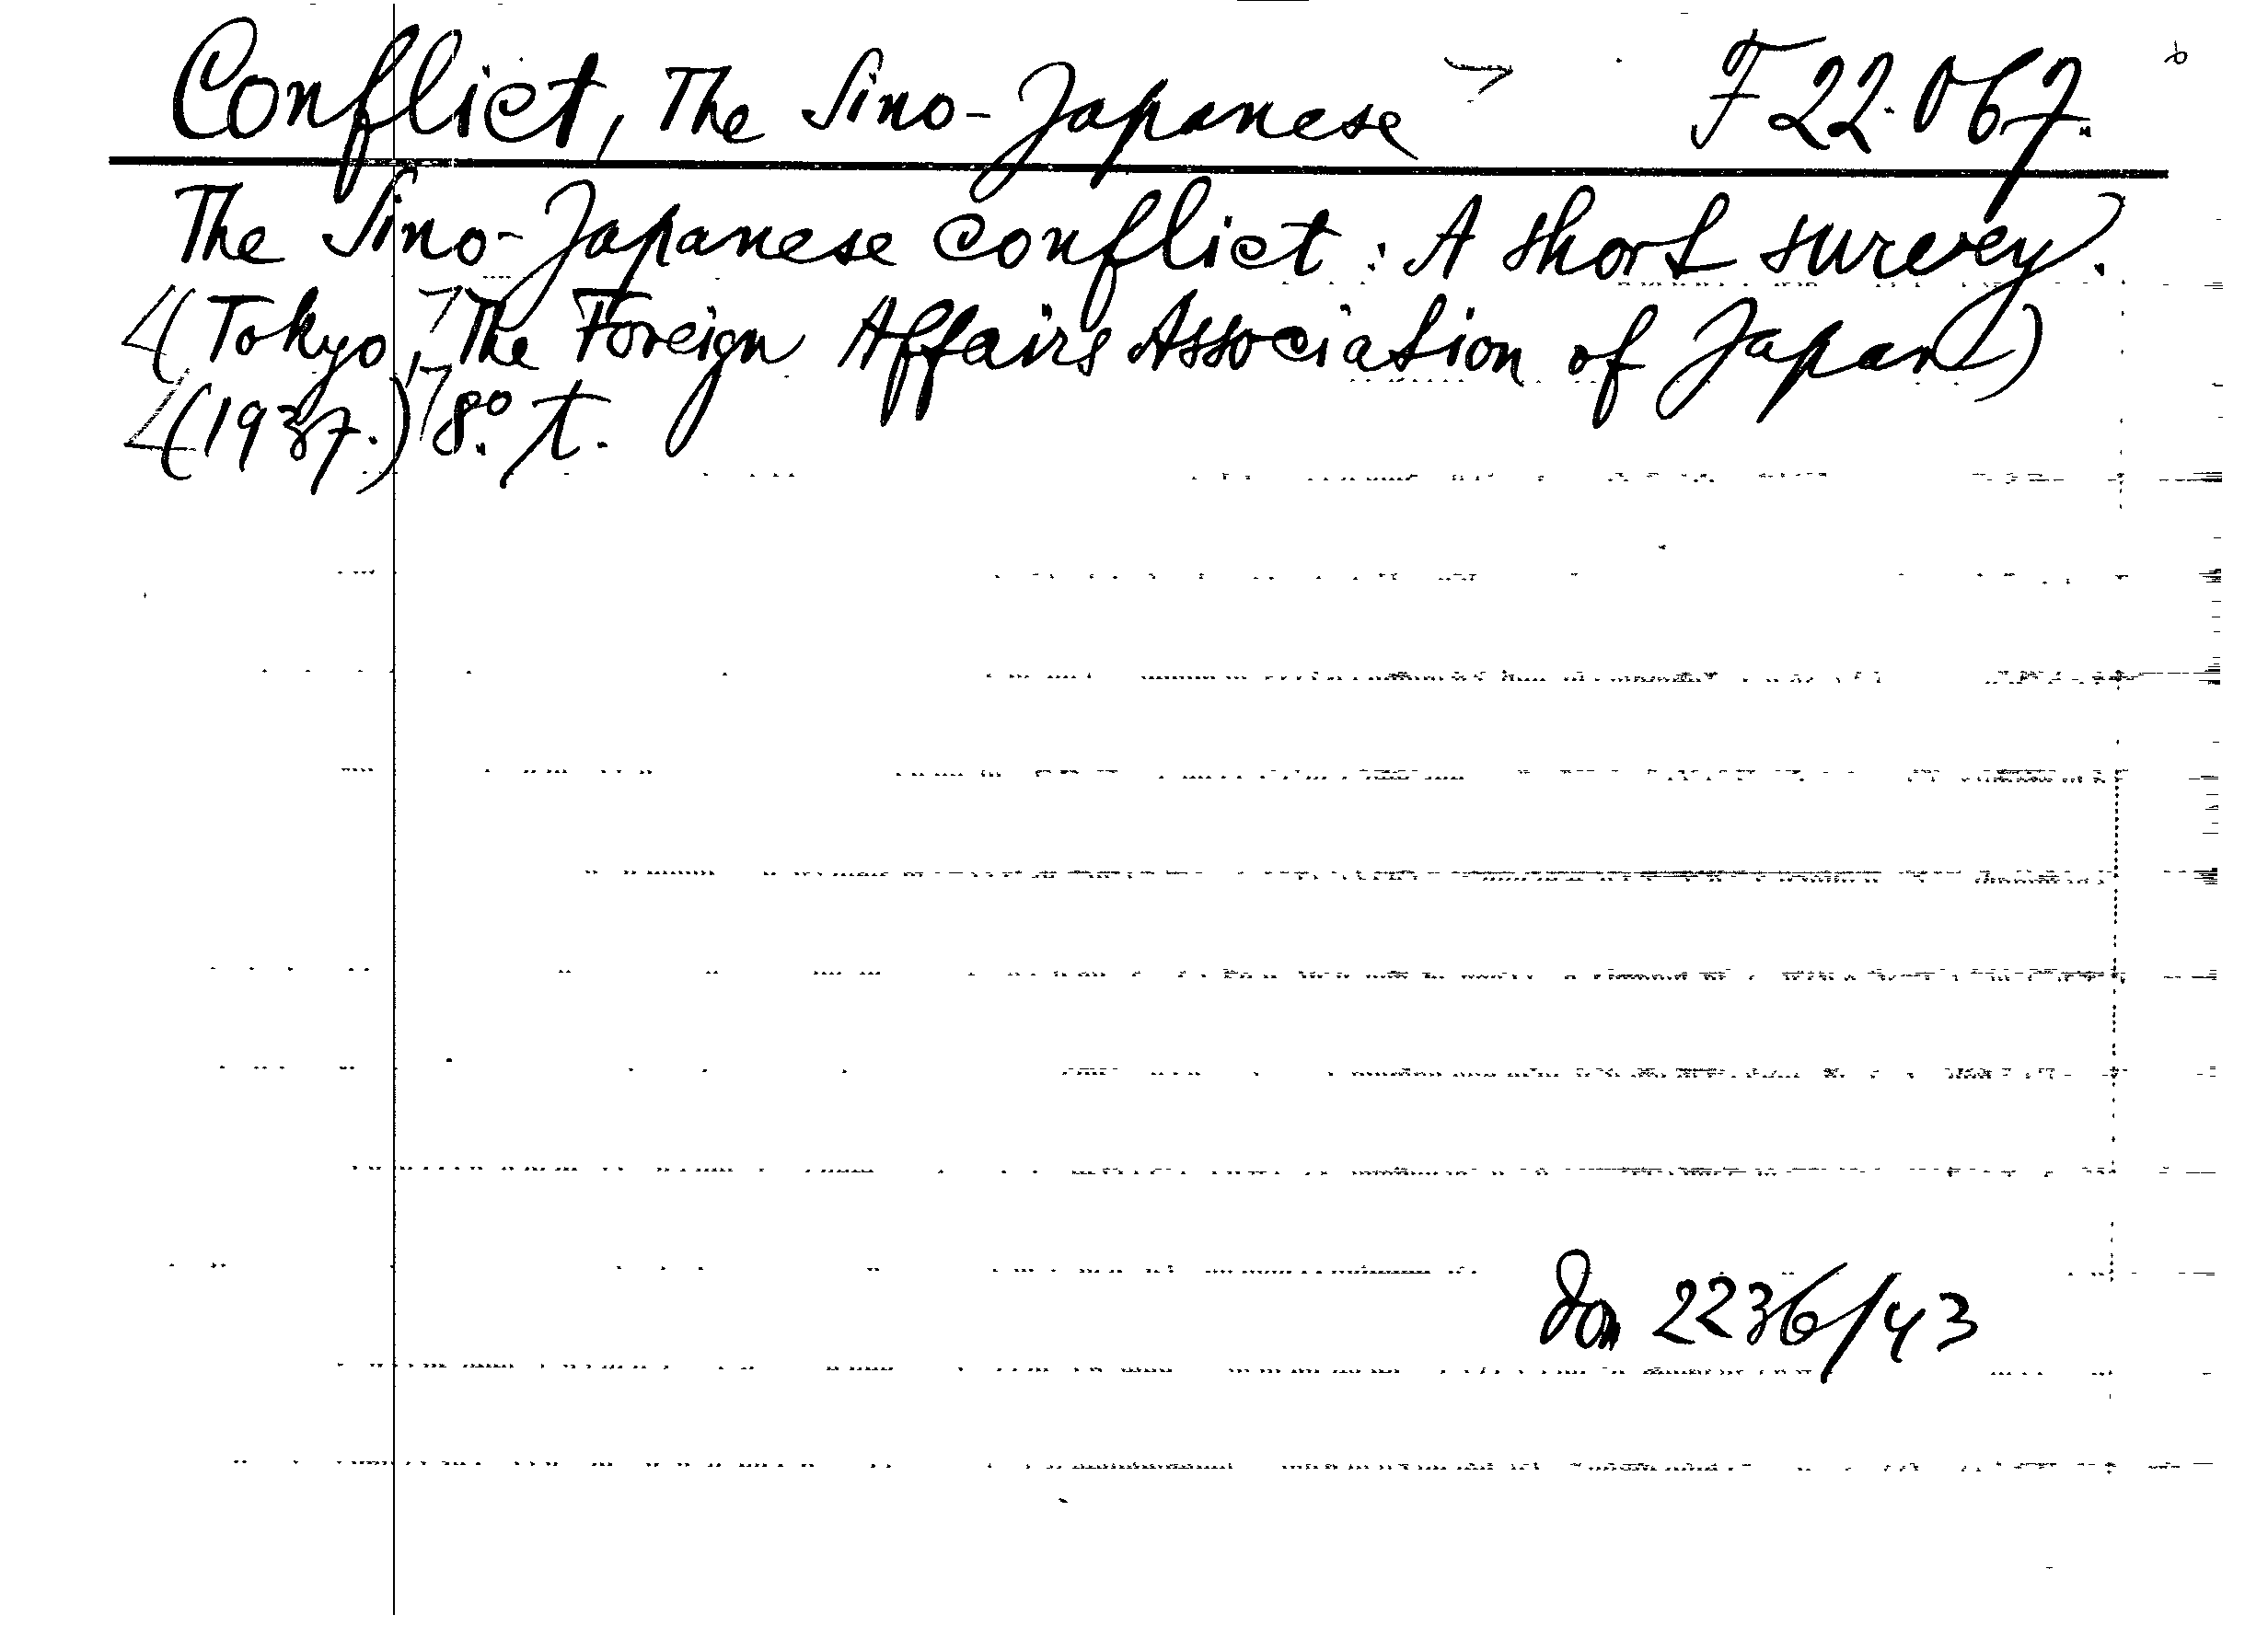 Conflict, The Sino-Japanese F 22.067.
The Sino-Japanese conflict: A short survey.
(Tokyo, The Foreign Affairs Association of Japan)
(1937.) 8.º t.
Don 2236/43